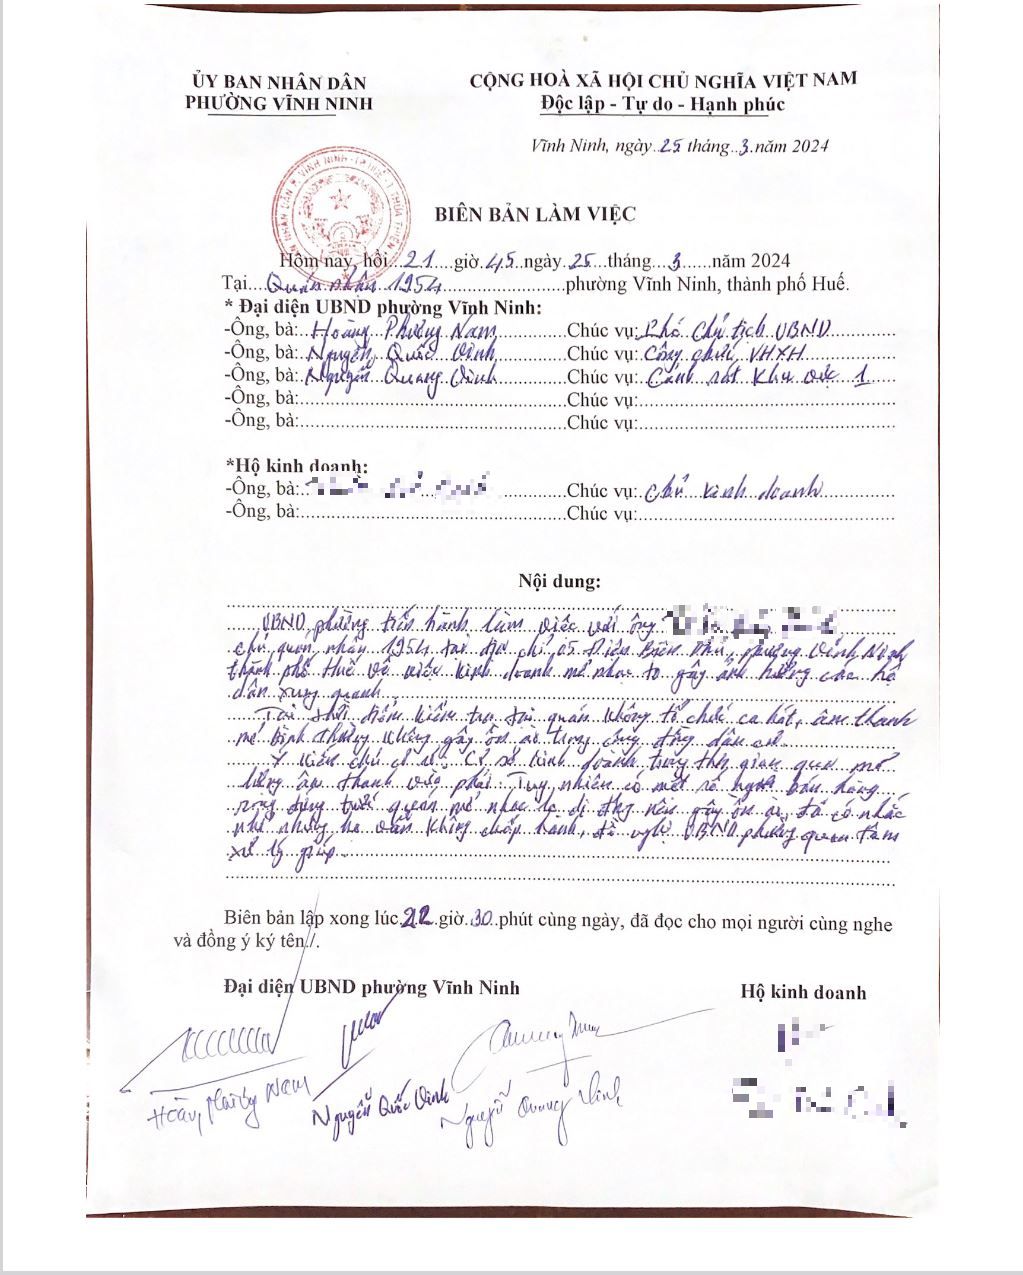 ỦY BAN NHÂN DÂN
PHƯỜNG VĨNH NINH
CỘNG HOÀ XÃ HỘI CHỦ NGHĨA VIỆT NAM
Độc lập - Tự do - Hạnh phúc
Vĩnh Ninh, ngày 25 tháng 3 năm 2024
BIÊN BẢN LÀM VIỆC
Hôm nay, hồi 21 giờ 45 ngày 25 tháng 3 năm 2024
Tại Quán nhậu 1954 phường Vĩnh Ninh, thành phố Huế.
* Đại diện UBND phường Vĩnh Ninh:
-Ông, bà: Hoàng Phương Nam Chúc vụ: Phó Chủ tịch UBND
-Ông, bà: Nguyễn Quốc Vinh Chúc vụ: Công chức VHXH
-Ông, bà: Nguyễn Quang Vinh Chúc vụ: Cảnh sát khu vực 1
-Ông, bà: Chúc vụ:
-Ông, bà: Chúc vụ:
*Hộ kinh doanh:
-Ông, bà: Chúc vụ: Chủ kinh doanh
-Ông, bà: Chúc vụ:
Nội dung:
UBND phường tiến hành làm việc với ông
chủ quán nhậu 1954 tại địa chỉ 05 Điện Biên Phủ, phường Vĩnh Ninh
thành phố Huế về việc kinh doanh mở nhạc to gây ảnh hưởng các hộ
dân xung quanh
Tại thời điểm kiểm tra tại quán không tổ chức ca hát, âm thanh
mở bình thường không gây ồn ào trong cộng đồng dân cư.
Ý kiến chủ cơ sở: Cơ sở kinh doanh trong thời gian qua mở
tiếng âm thanh vừa phải. Tuy nhiên có một số người bán hàng
rong đứng trước quán mở nhạc di động nên gây ồn ào, đã có nhắc
nhở nhưng họ vẫn không chấp hành, đề nghị UBND phường quan tâm
xử lý giúp.
Biên bản lập xong lúc 22 giờ 30 phút cùng ngày, đã đọc cho mọi người cùng nghe
và đồng ý ký tên./.
Đại diện UBND phường Vĩnh Ninh
Hộ kinh doanh
Hoàng Phương Nam
Nguyễn Quốc Vinh
Nguyễn Quang Vinh